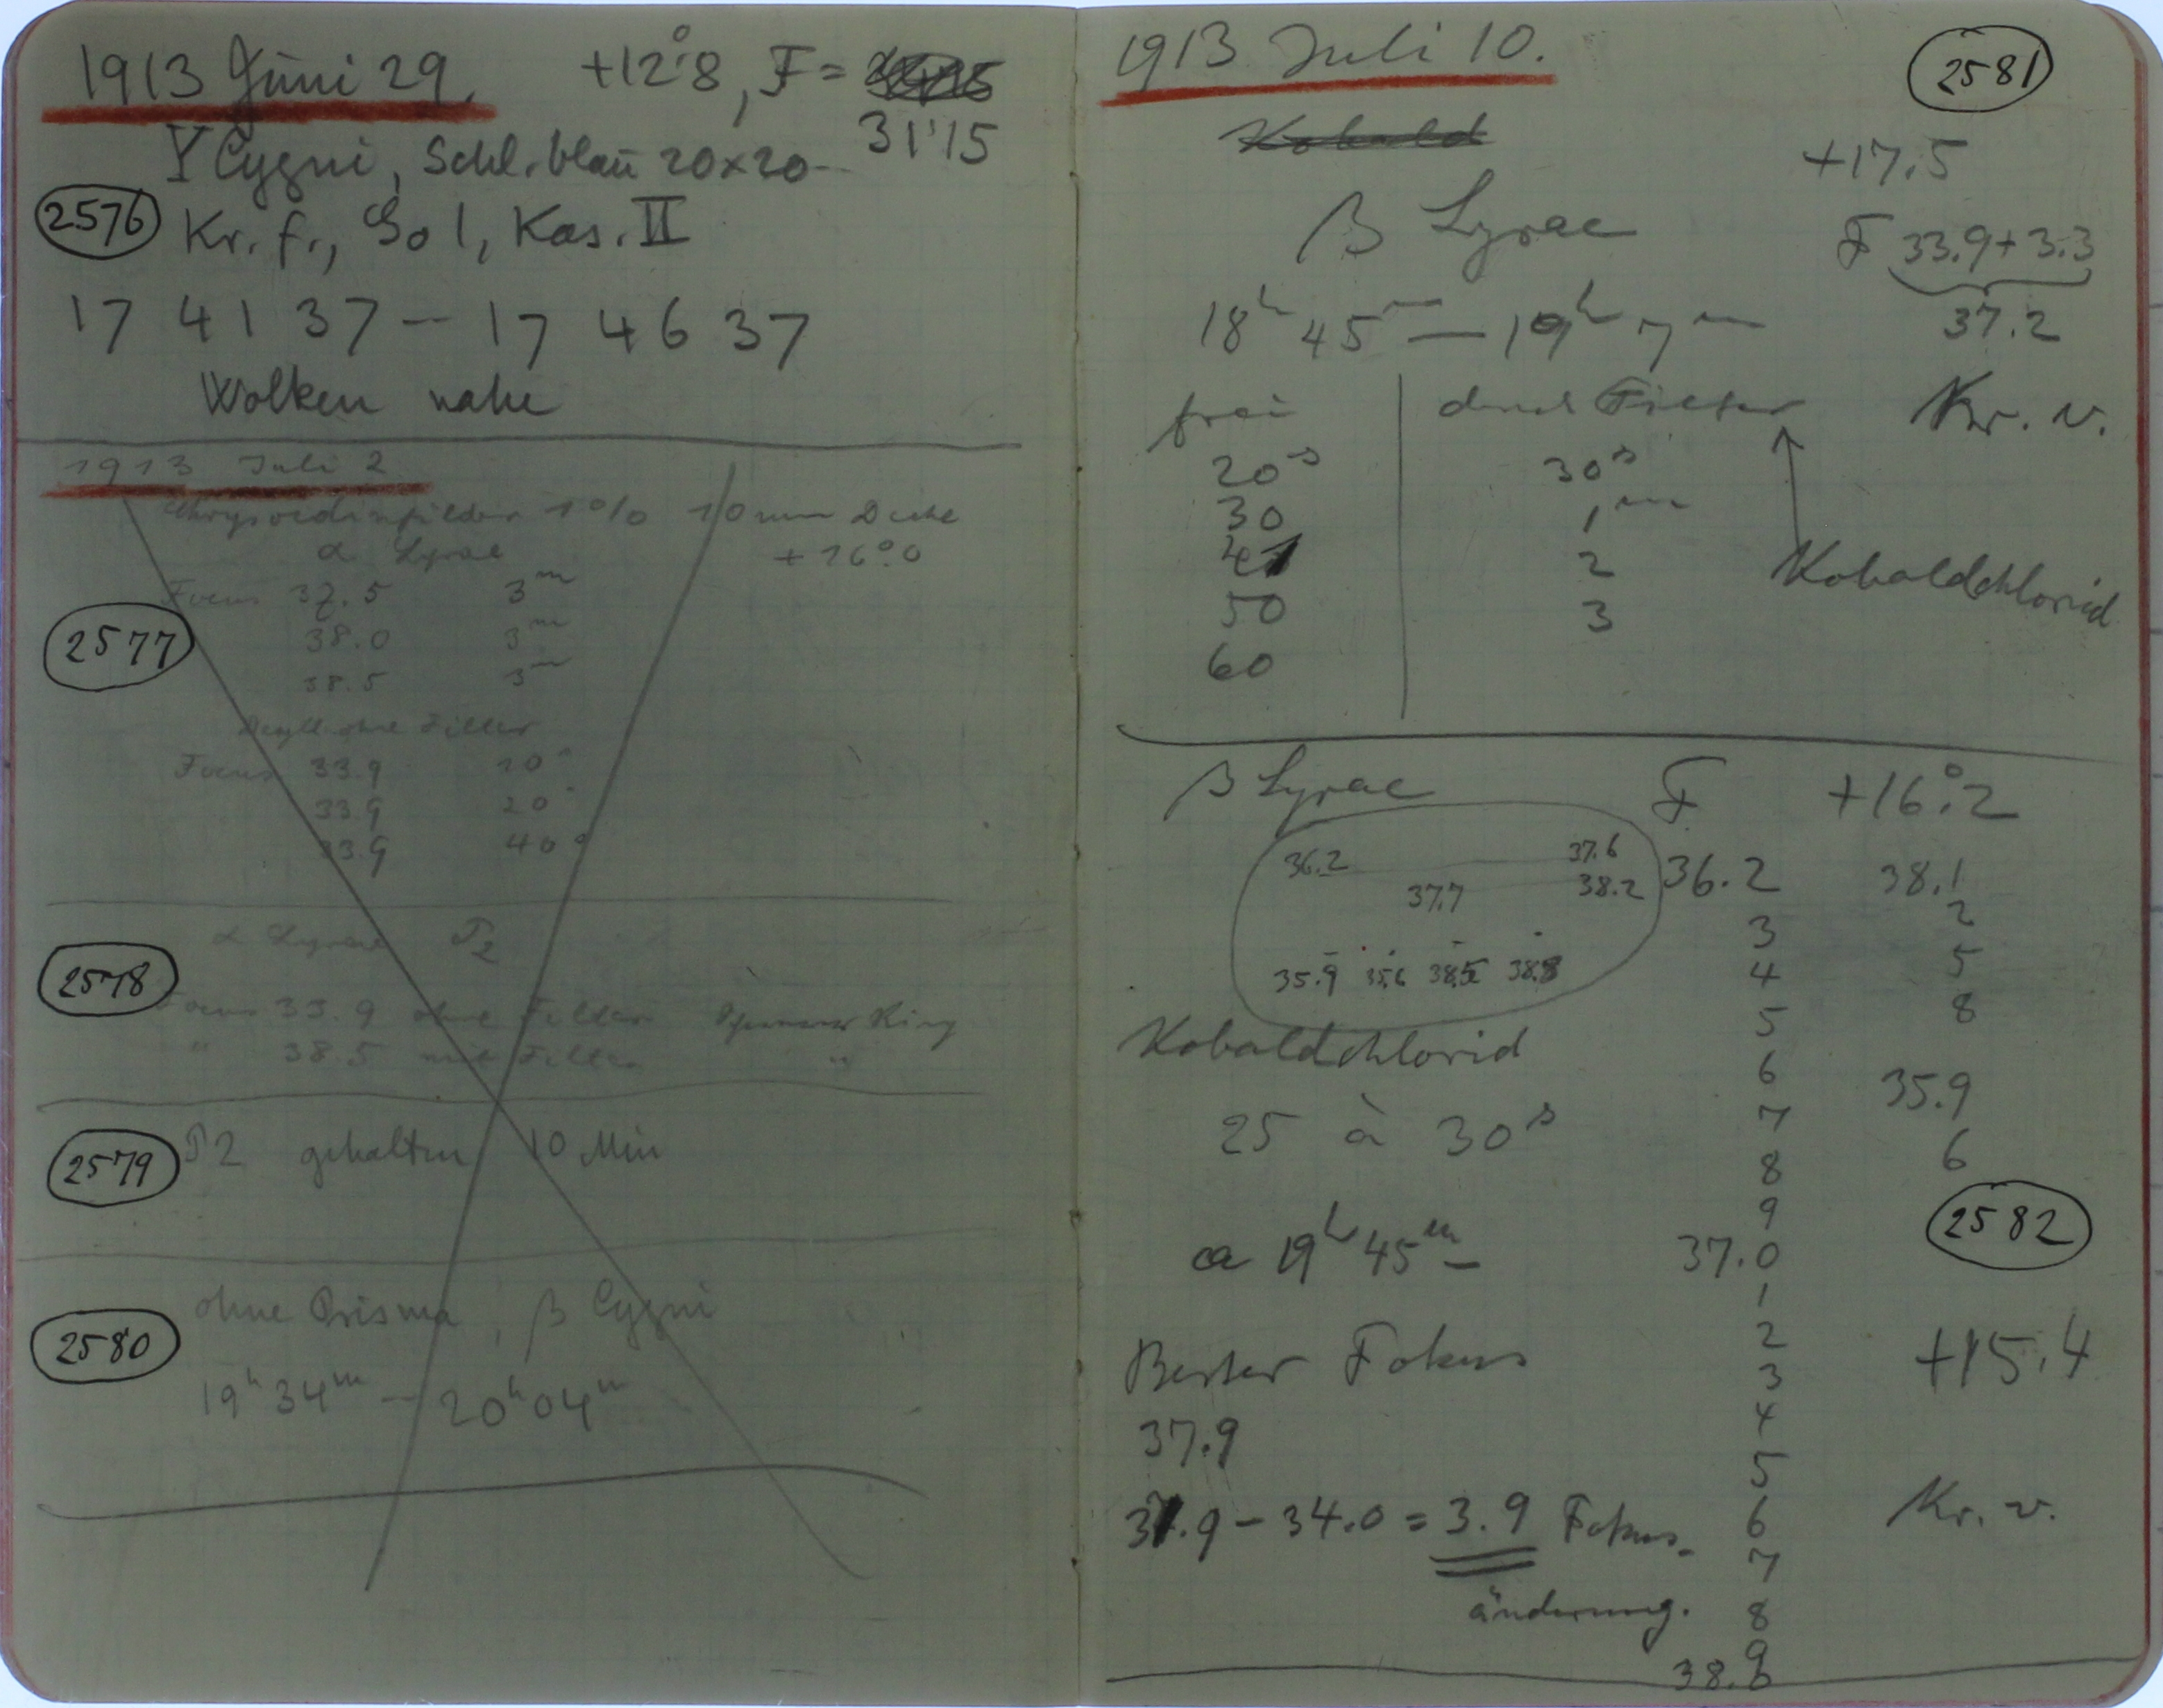 1913 Juni 29. +12°.8, F =
31.15
Y Cygni, Schl. blau 20x20
2576 Kr. f., So 1, Kas. II
17 41 37 — 17 46 37
Wolken nahe
1913 Juli 2
1% 10 mm Dicke
α Lyrae +16°.0
Focus 37.5 3m
2577
38.0 3m
38.5 3m
ohne Filter
Focus 33.9 10s
33.9 20s
33.9 40s
α Lyrae
2578
Focus 33.9 ohne Filter Ring
" 38.5 mit Filter "
2579 P2 gehalten 10 Min
ohne Prisma, β Cygni
2580
19h 34m — 20h 04m
1913 Juli 10. 2581
Kobald
+17.5
β Lyrae F 33.9+3.3
37.2
18h 45m — 19h 7m
frei durch Filter Kr. v.
20s 30s
30 1m
2 Kobaldchlorid
50 3
60
β Lyrae F +16°.2
36.2 37.6
37.7 38.2
35.9 35.6 38.5 38.8
36.2 38.1
3 2
4 5
5 8
Kobaldchlorid
6 35.9
25 à 30s 7
8 6
9 2582
ca 19h 45m 37.0
1
2
Bester Fokus 3 +15.4
4
37.9 5
37.9 − 34.0 = 3.9 Fokus- 6 Kr. v.
7
änderung. 8
9
38.0